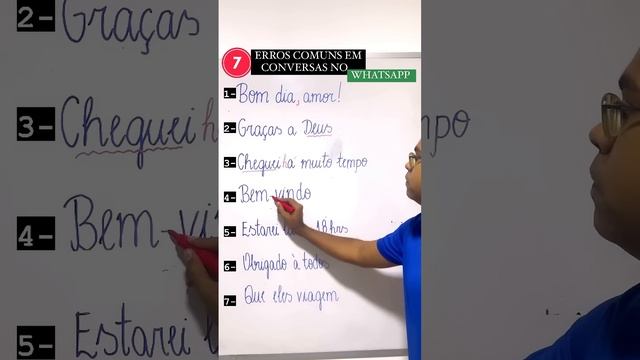 2- Graças
3- Chequei h
4- Bem - vi
5- Estarei
7 ERROS COMUNS EM
CONVERSAS NO
WHATSAPP
1- Bom dia, amor!
2- Graças a Deus
3- Chequei há muito tempo
4- Bem vindo
5- Estarei 18hrs
6- Obrigado à todos
7- Que eles viagem
po